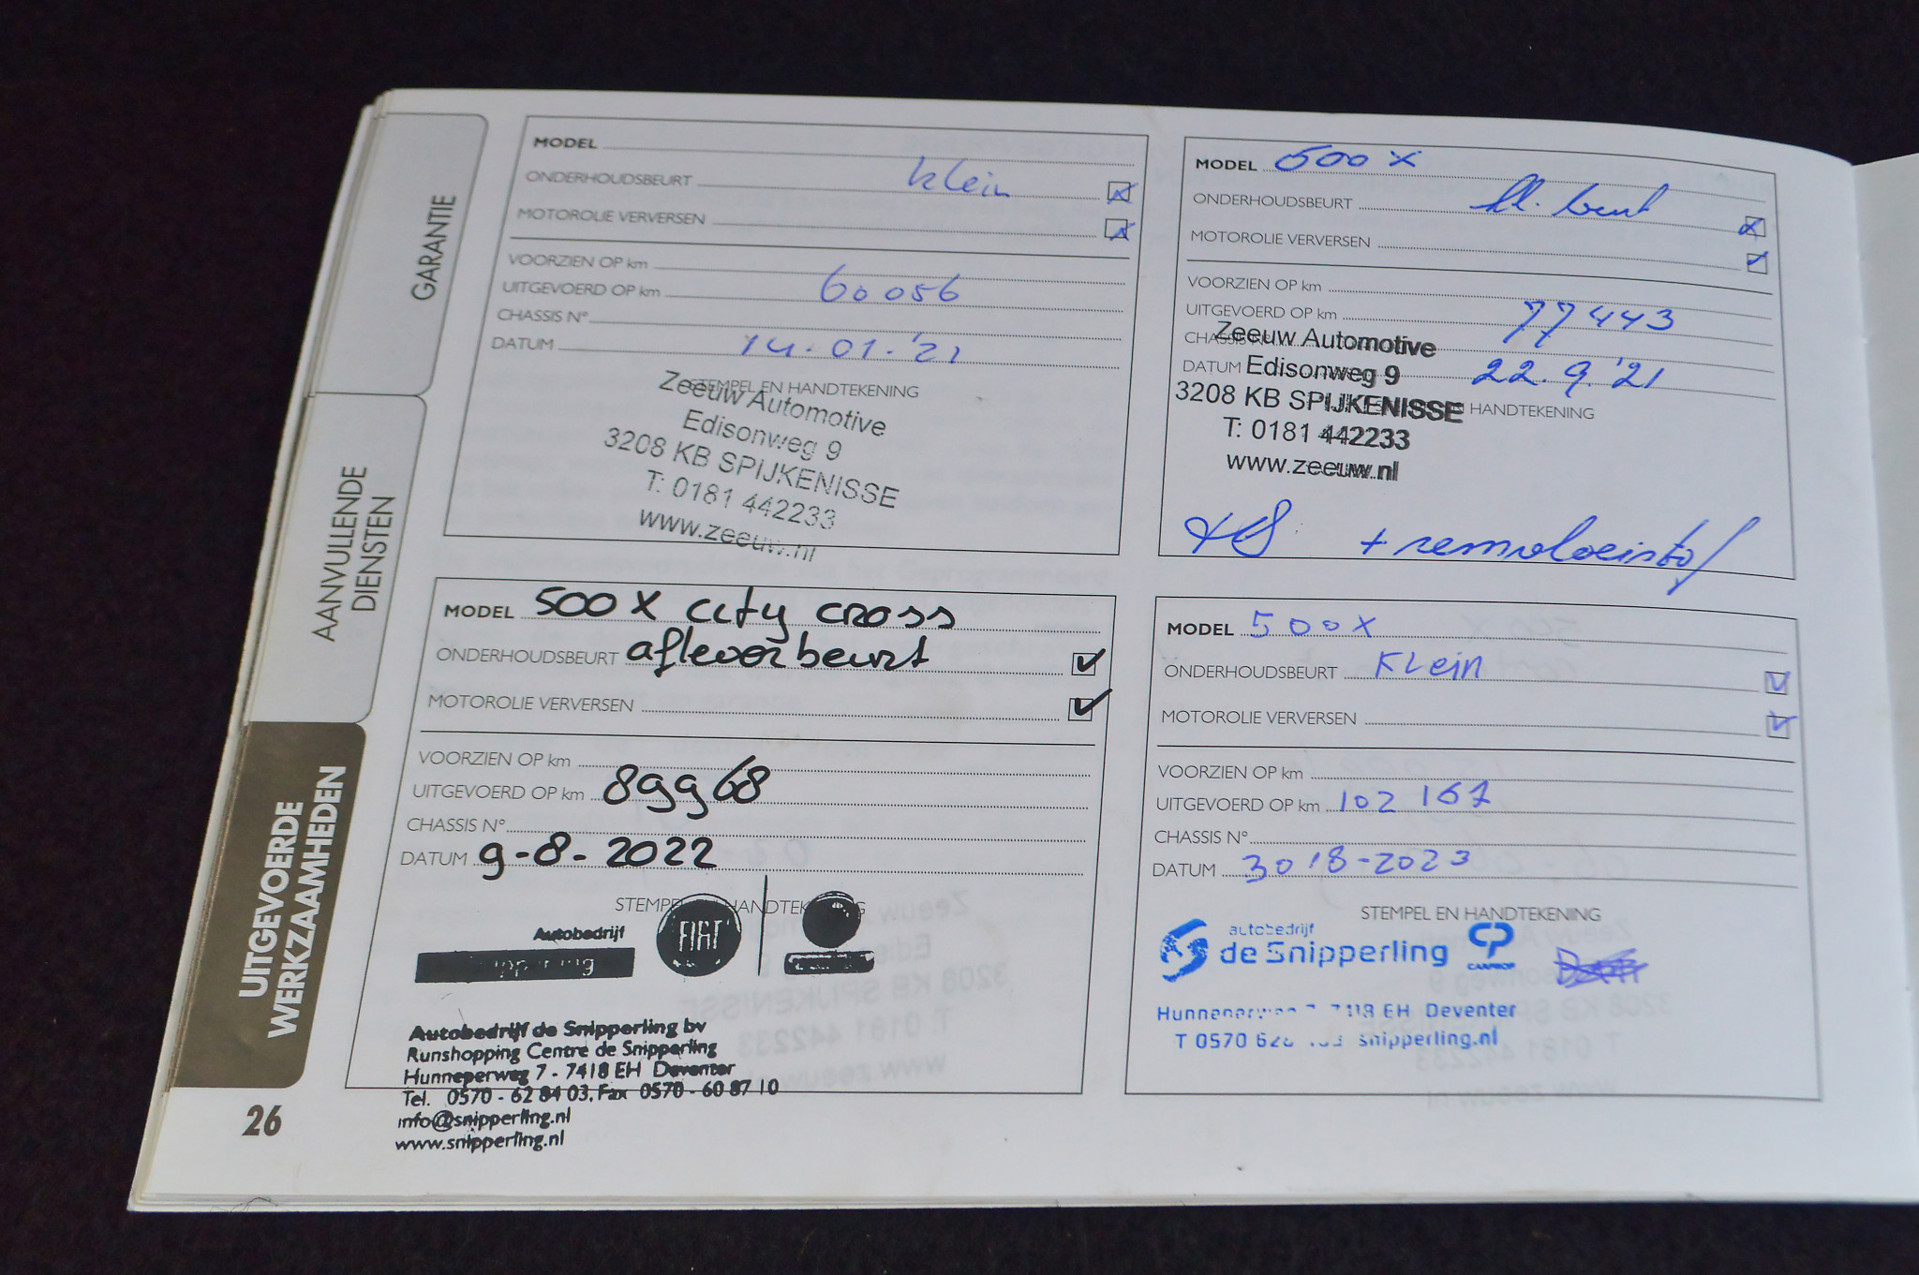 GARANTIE
AANVULLENDE
DIENSTEN
UITGEVOERDE
WERKZAAMHEDEN
26
MODEL
ONDERHOUDSBEURT klein
MOTOROLIE VERVERSEN
VOORZIEN OP km
UITGEVOERD OP km 60056
CHASSIS N°
DATUM 14.01.'21
STEMPEL EN HANDTEKENING
Zeeuw Automotive
Edisonweg 9
3208 KB SPIJKENISSE
T: 0181 442233
www.zeeuw.nl
MODEL 500 X
ONDERHOUDSBEURT kl. beurt
MOTOROLIE VERVERSEN
VOORZIEN OP km
UITGEVOERD OP km 77443
Zeeuw Automotive
DATUM 22.9.'21
Edisonweg 9
3208 KB SPIJKENISSE
HANDTEKENING
T: 0181 442233
www.zeeuw.nl
+ remvloeistof
MODEL 500 X City cross
ONDERHOUDSBEURT afleverbeurt
MOTOROLIE VERVERSEN
VOORZIEN OP km
UITGEVOERD OP km 89968
CHASSIS N°
DATUM 9-8-2022
STEMPEL EN HANDTEKENING
Autobedrijf
FIAT
Autobedrijf de Snipperling bv
Runshopping Centre de Snipperling
Hunneperweg 7 - 7418 EH Deventer
Tel. 0570 - 62 84 03, Fax 0570 - 60 87 10
info@snipperling.nl
www.snipperling.nl
MODEL 500X
ONDERHOUDSBEURT Klein
MOTOROLIE VERVERSEN
VOORZIEN OP km
UITGEVOERD OP km 102 167
CHASSIS N°
DATUM 30-8-2023
STEMPEL EN HANDTEKENING
autobedrijf
de Snipperling
7418 EH Deventer
T 0570 snipperling.nl